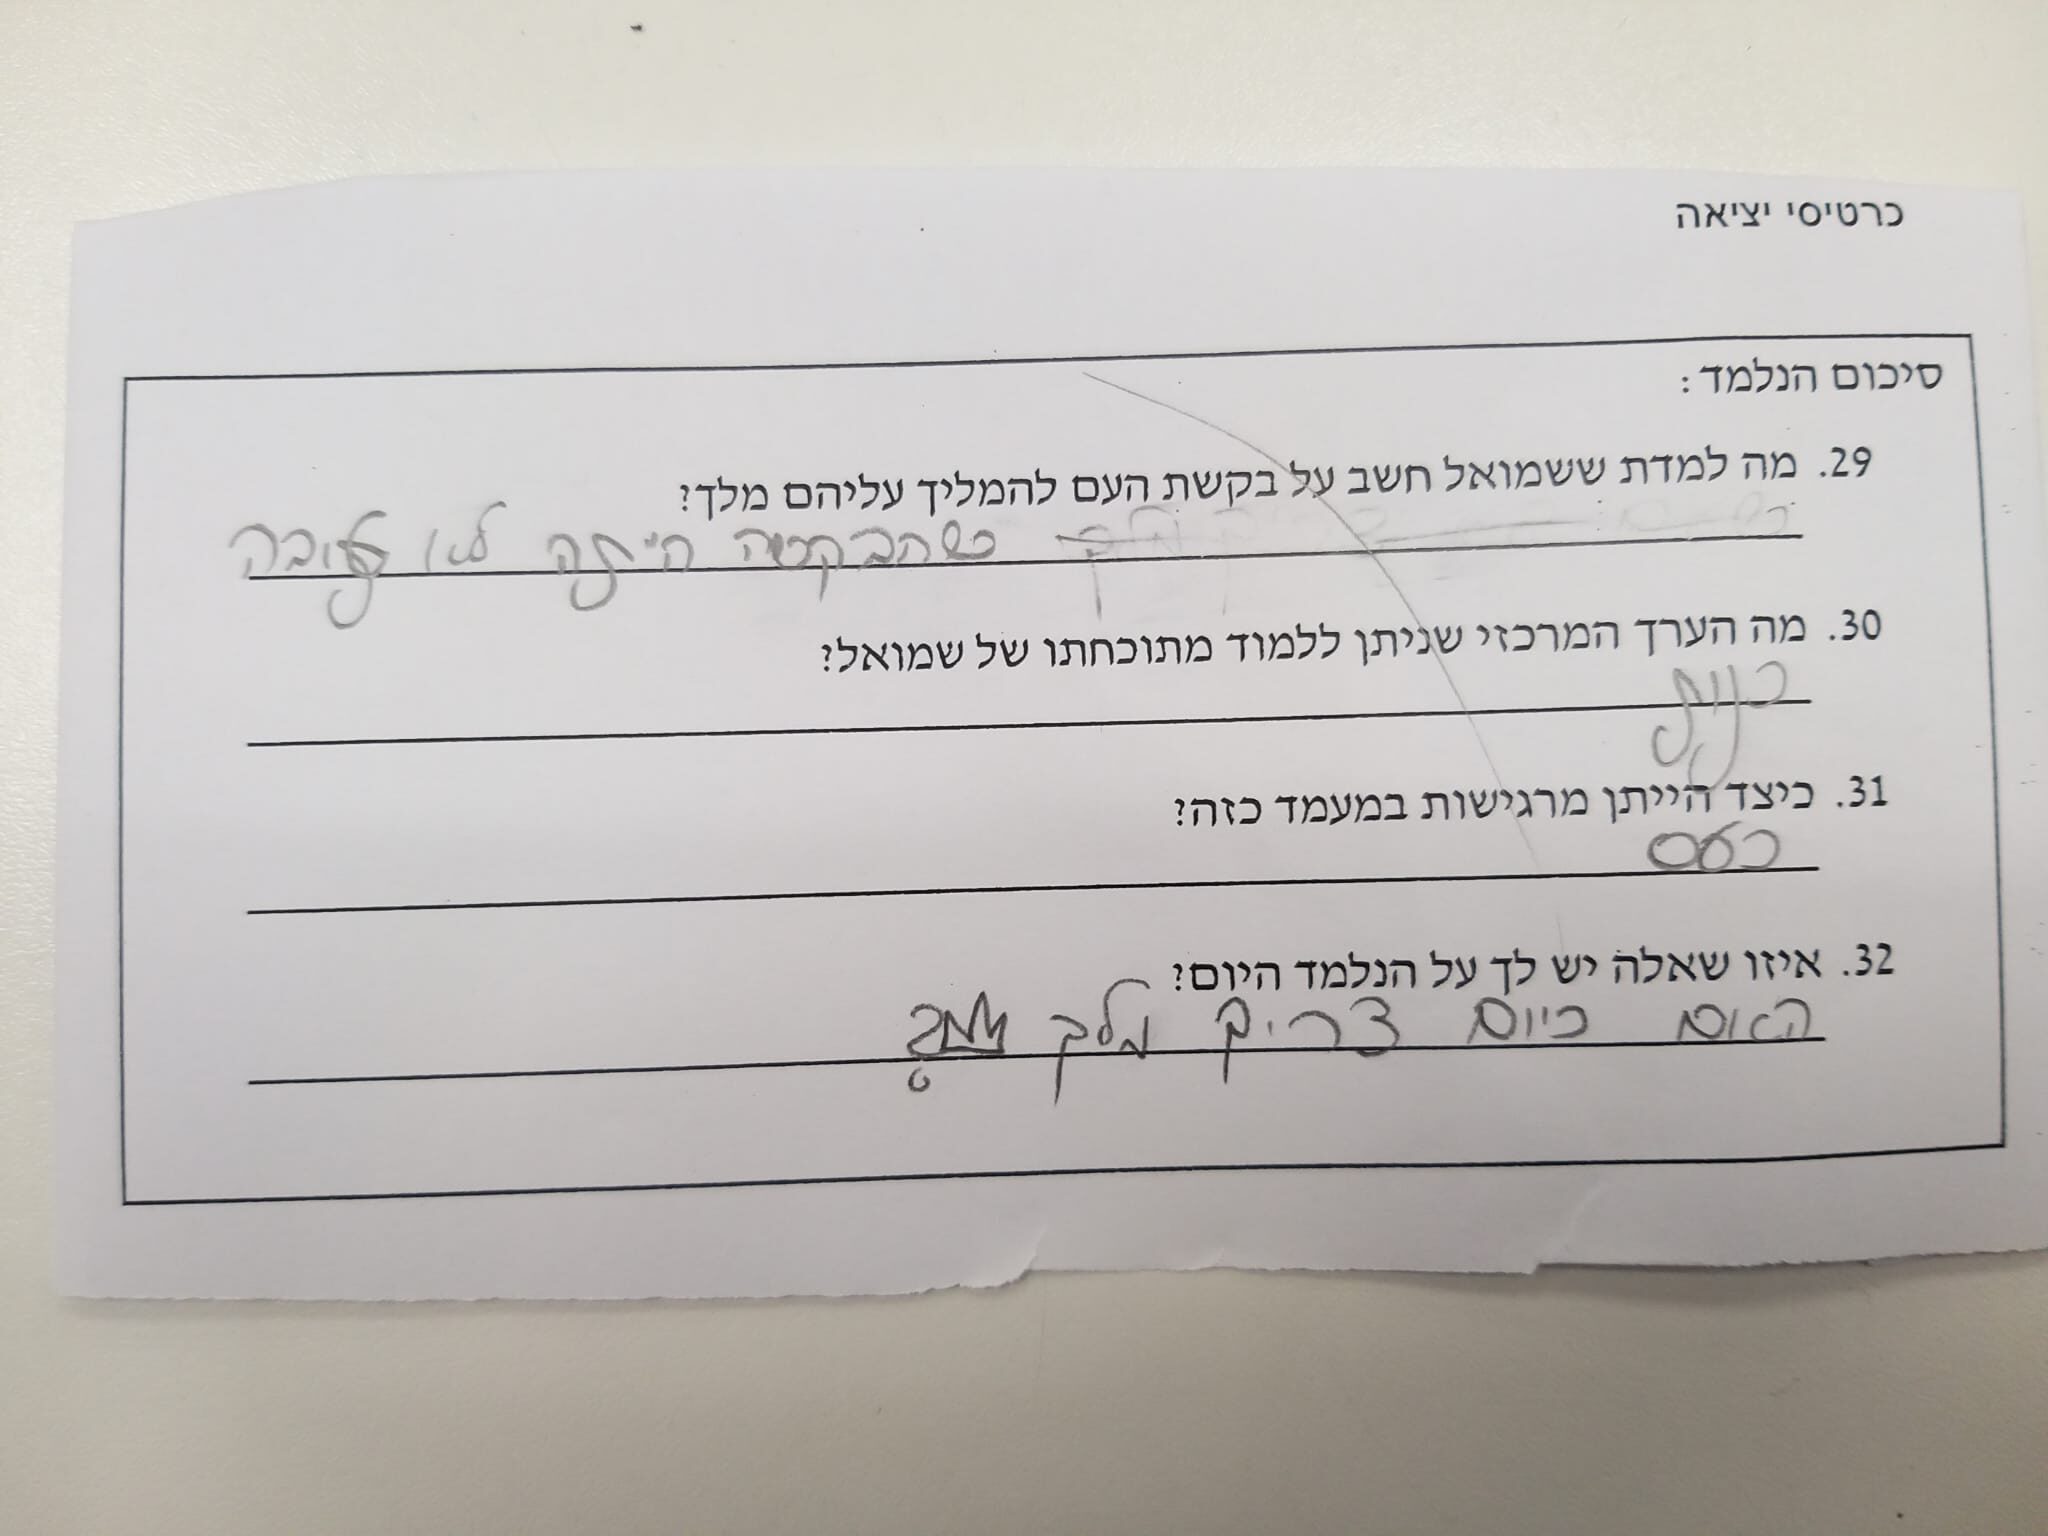 כרטיסי יציאה
סיכום הנלמד:
29. מה למדת ששמואל חשב על בקשת העם להמליך עליהם מלך?
כשהבקשה היתה לא טובה
30. מה הערך המרכזי שניתן ללמוד מתוכחתו של שמואל?
כנות
31. כיצד הייתן מרגישות במעמד כזה?
כעס
32. איזו שאלה יש לך על הנלמד היום?
האום כיום צריך מלך